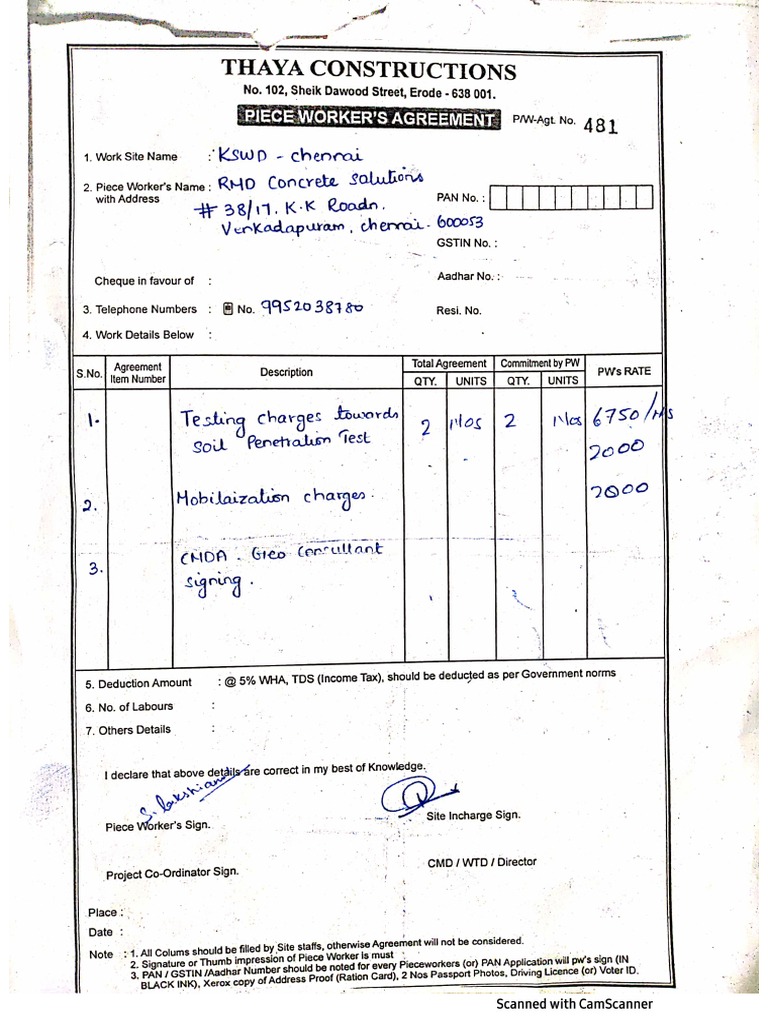 THAYA CONSTRUCTIONS
No. 102, Sheik Dawood Street, Erode - 638 001.
PIECE WORKER'S AGREEMENT
P/W-Agt. No. 481
1. Work Site Name : KSWD - chennai
2. Piece Worker's Name : RMD Concrete Solutions
with Address
# 38/17. K.K Roadn.
Venkadapuram, chennai. 600053
PAN No. :
GSTIN No. :
Cheque in favour of :
Aadhar No. :
3. Telephone Numbers : No. 9952038780
Resi. No.
4. Work Details Below :
S.No. Agreement Item Number Description Total Agreement Commitment by PW PWs RATE
QTY. UNITS QTY. UNITS
1. Testing charges towards 2 Nos 2 Nos 6750/Nos
Soil Penetration Test 2000
2. Mobilaization charges. 2000
3. CMDA. Geo Consultant
signing.
5. Deduction Amount : @ 5% WHA, TDS (Income Tax), should be deducted as per Government norms
6. No. of Labours :
7. Others Details :
I declare that above details are correct in my best of Knowledge.
Piece Worker's Sign.
Site Incharge Sign.
Project Co-Ordinator Sign.
CMD / WTD / Director
Place :
Date :
Note : 1. All Colums should be filled by Site staffs, otherwise Agreement will not be considered.
2. Signature or Thumb impression of Piece Worker is must
3. PAN / GSTIN /Aadhar Number should be noted for every Pieceworkers (or) PAN Application will pw's sign (IN
BLACK INK), Xerox copy of Address Proof (Ration Card), 2 Nos Passport Photos, Driving Licence (or) Voter ID.
Scanned with CamScanner